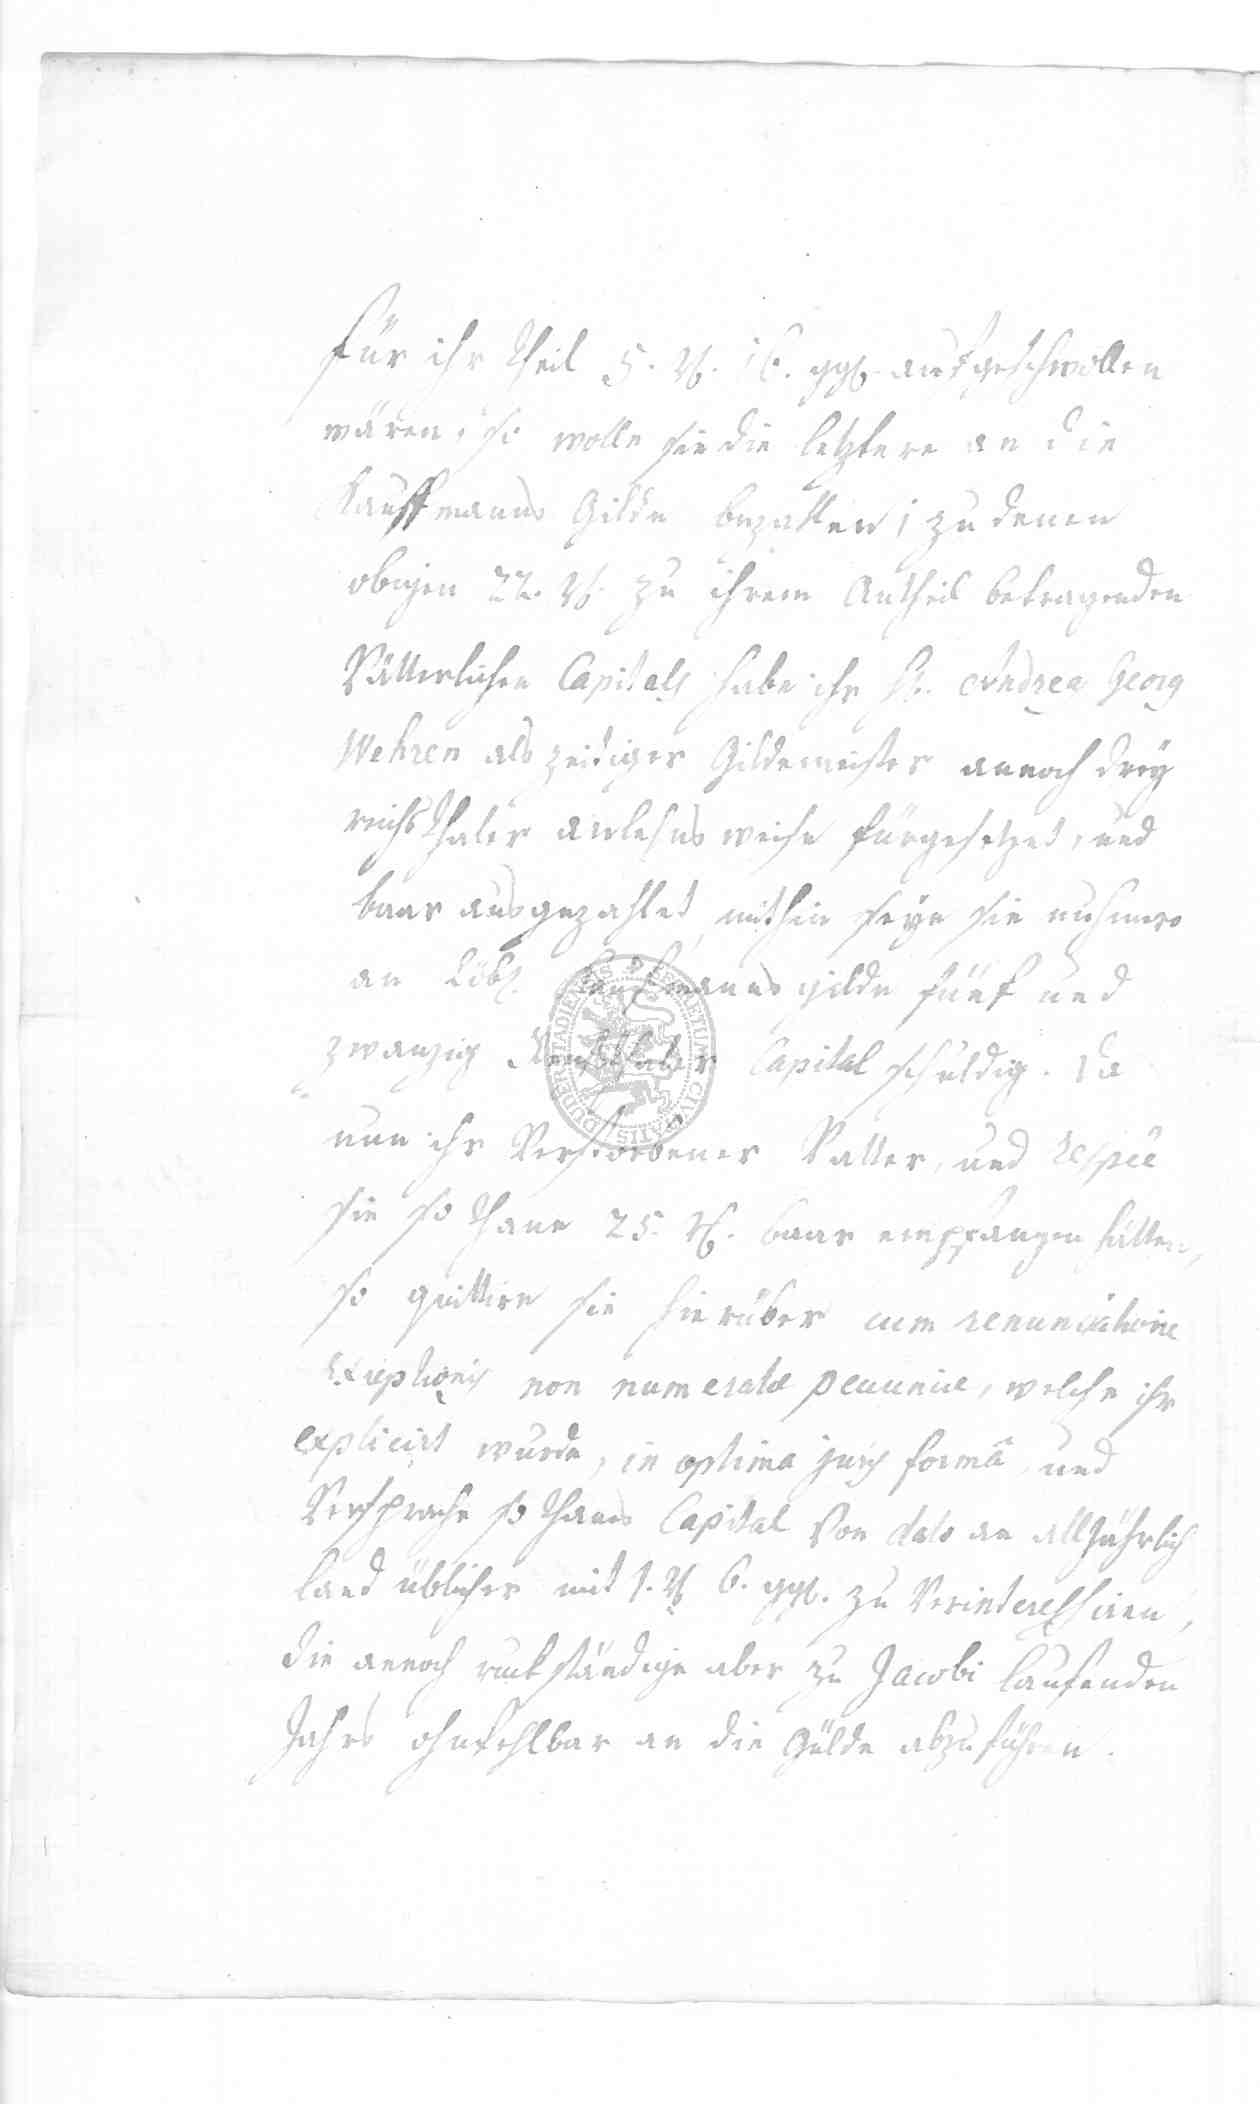 für ihr theil 5. Rthl. 16. ggl. aufgeschwollen
wären, so wolle sie die letztere an die
Kauffmanns Gilde bezahlen; zu denen
obigen 22. Rthl. zu ihrem Antheil betragenden
Vätterlichen Capitals habe ihr H. Andrea Georg
Wehren als zeitiger Gildemeister annoch drey
reichsthaler anlehns weise fürgesetzet, und
baar ausgezahlet, mithin seye sie nuhmero
an Löbl. Kaufmanns gilde fünf und
zwanzig Reichsthaler Capital schuldig. Da
nun ihr Verstorbener Vatter, und respée
sie so thane 25. Rthl. baar empfangen hätten,
so quittire sie hierüber cum renunciatione
Exceptionis non numeratæ pecuniæ, welche ihr
explicirt wurde, in optima juris formâ, und
Verspreche so thanes Capital von dato an alljährlich
land üblicher mit 1. Rthl. 6. ggl. zu Verinteressiren,
die annoch ruckständige aber zu Jacobi laufenden
Jahrs ohnfehlbar an die Gülde abzuführen.
DUDERSTADIENSIS SECRETUM CIVITATIS